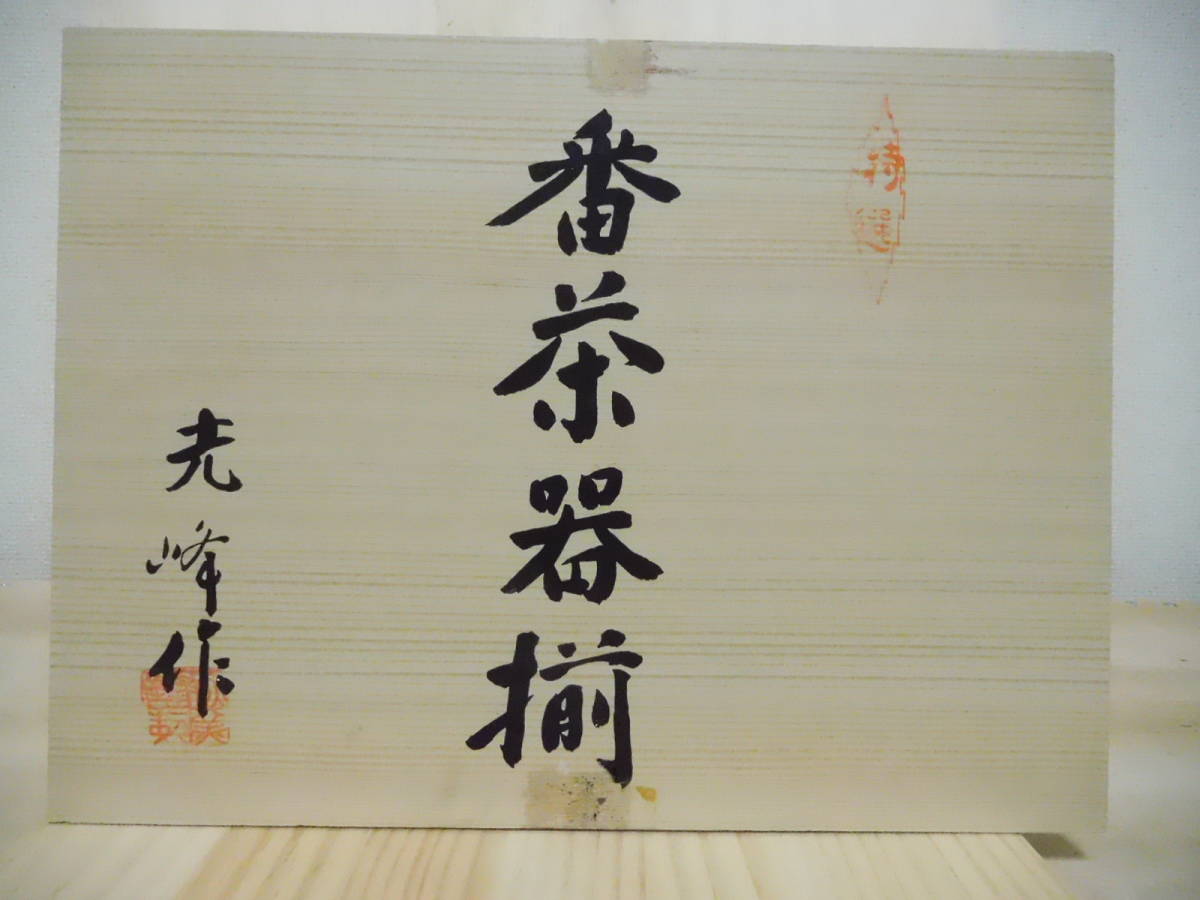 特選
番茶器揃
光峰作